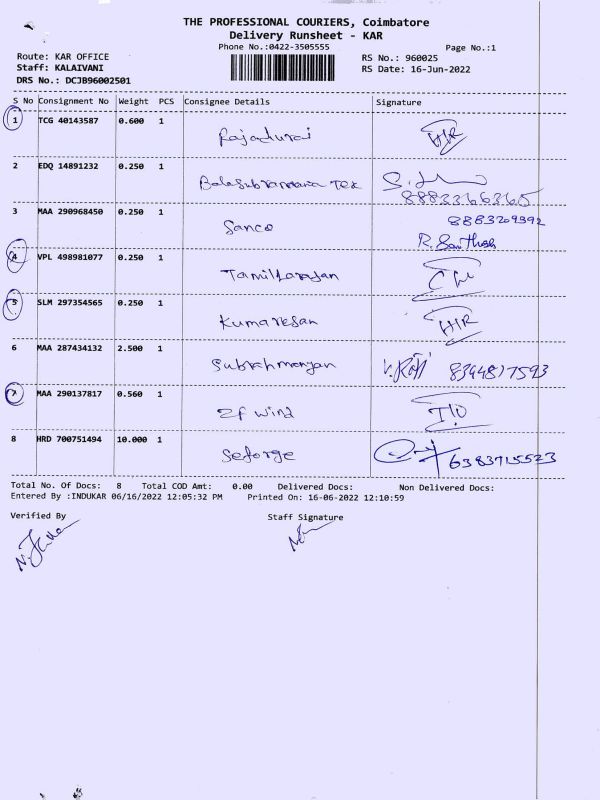 THE PROFESSIONAL COURIERS, Coimbatore
Delivery Runsheet - KAR
Phone No.:0422-3505555
Page No.:1
Route: KAR OFFICE
RS No.: 960025
Staff: KALAIVANI
RS Date: 16-Jun-2022
DRS No.: DCJB96002501
S No Consignment No Weight PCS Consignee Details Signature
1 TCG 40143587 0.600 1 Rajadurai
2 EDQ 14891232 0.250 1 Balasubramania Tex 8883366365
3 MAA 290968450 0.250 1 Sanco 8883209392
R. Santhosh
4 VPL 498981077 0.250 1 Tamilarasan
5 SLM 297354565 0.250 1 Kumaresan
6 MAA 287434132 2.500 1 Subrahmanyan 8344817593
7 MAA 290137817 0.560 1 Zf wind
8 HRD 700751494 10.000 1 Seforge 6383715523
Total No. Of Docs: 8 Total COD Amt: 0.00 Delivered Docs: Non Delivered Docs:
Entered By :INDUKAR 06/16/2022 12:05:32 PM Printed On: 16-06-2022 12:10:59
Verified By Staff Signature